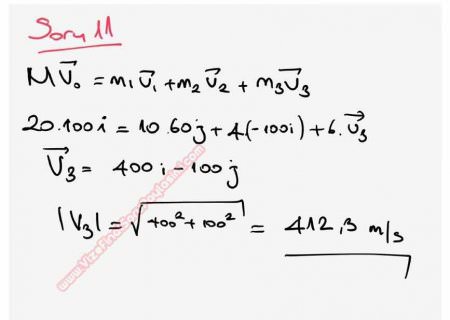 Soru 11
M V⃗₀ = m₁V⃗₁ + m₂V⃗₂ + m₃V⃗₃
20.100i = 10.60j + 4(-100i) + 6.V⃗₃
V⃗₃ = 400i - 100j
|V₃| = √400² + 100² = 412,3 m/s